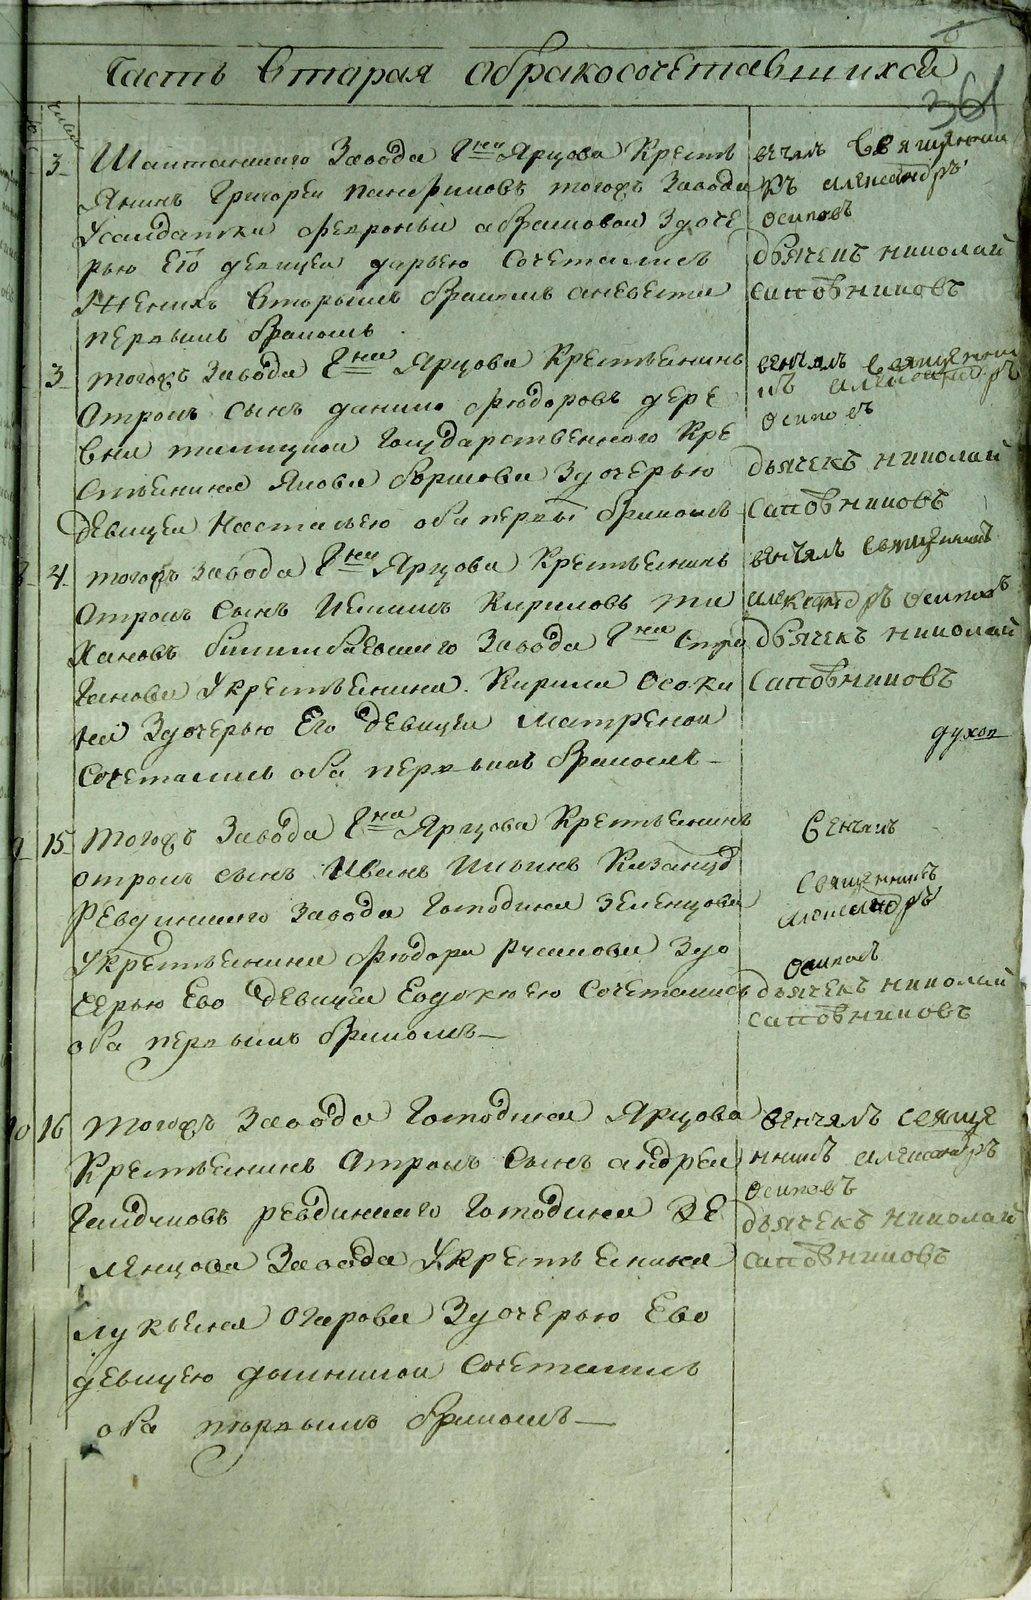 Часть вторая обракосочетавшихся
361
3 Шайтанского завода Г<sup>на</sup> Ярцова кресть
янинъ Григорей Панфиловъ тогожъ завода
у салдатки Февроньи Абрамовой здоче
рью его девицеи Дарьею сочетались
жених вторымъ бракомъ аневеста
первымъ бракомъ
вѣнчалъ священни
къ Александръ
Осиповъ
дьячекъ Николай
Сапожниковъ
3 тогожъ завода Г<sup>на</sup> Ярцова крестьенинъ
отрокъ сынъ Данило Фюдоровъ дере
вни государственного кре
стьенина Якова здочерью
девицеи Настасьею оба первы бракомъ
венчалъ священни
къ Александръ
Осиповъ
дьячекъ Николай
Сапожниковъ
4 тогожъ завода Г<sup>на</sup> Ярцова крестьенинъ
отрокъ сынъ Кириловъ Ти
хановъ билимбаевского завода Г<sup>на</sup> Стро
ганова укрестьенина Кирила Осоки
на здочерью его девицеи Матреной
сочетались оба первымъ бракомъ
венчалъ священникъ
Александръ Осиповъ
дьячекъ Николай
Сапожниковъ
духов
15 тогожъ завода Г<sup>на</sup> Ярцова крестьенинъ
отрокъ сынъ Иванъ Ильинъ
Ревдинского завода господина Зеленцова
укрестьенина Фюдора здо
черью ево девицеи Евдокиею сочетались
оба первымъ бракомъ
Венчалъ
священникъ
Александръ
Осиповъ
дьячекъ Николай
Сапожниковъ
10 16 тогожъ завода господина Ярцова
крестьенинъ отрокъ сынъ Андреи
ревдинского господина Зе
ленцова завода укрестьенина
Лукьена Огарова здочерью ево
девицею сочетались
оба первымъ бракомъ
венчалъ свяще
нникъ Александръ
Осиповъ
дьячекъ Николай
Сапожниковъ
METRIKI.GASO-URAL.RU